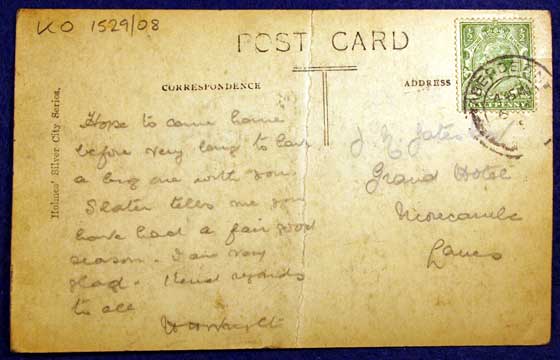 KO 1529/08
POST CARD
CORRESPONDENCE
ADDRESS
Holmes' Silver City Series.
Hope to come home
before very long to have
a big one with you.
Slater tells me you
have had a fair good
season. I am very
glad. Kind regards
to all
J
Grand Hotel
Morecambe
Lancs
ABERDEEN